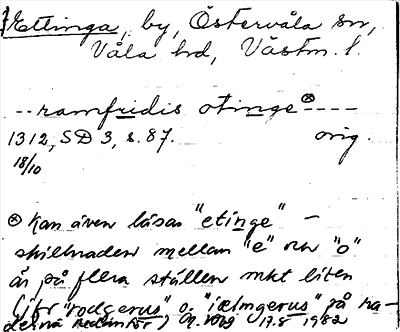 Ettinga, by, Östervåla sn,
Våla hd, Västm. l.
-- ramfridis otinge ⊗ ----
1312, SD 3, s. 87. orig.
18/10
⊗ kan även läsas "etinge" –
skillnaden mellan "e" och "o"
är på flera ställen mkt liten
(jfr "rodgerus" o. "iælmgerus" på ra-
derna nedanför) 17.8 1982